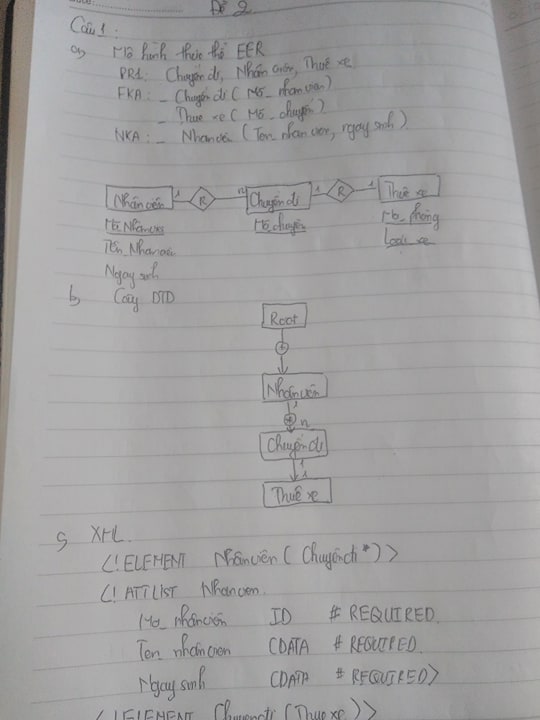 Đề 2
Câu 1:
a) Mô hình thực thể EER
PR1: Chuyến đi, Nhân viên, Thuê xe
FKA: - Chuyến đi (Mã_nhân viên)
- Thuê xe (Mã_chuyến)
NKA: - Nhân viên (Tên nhân viên, ngày sinh)
Nhân viên 1 R n Chuyến đi 1 R 1 Thuê xe
Mã Nhân viên Mã_chuyến Mã_phòng
Tên_Nhân viên Loại_xe
Ngày sinh
b, Cây DTD
Root
Nhân viên
1
n
Chuyến đi
1
1
Thuê xe
c, XML.
<! ELEMENT Nhân viên ( Chuyến đi *) >
<! ATTLIST Nhân viên.
Mã_nhân viên ID # REQUIRED.
Tên nhân viên CDATA # REQUIRED.
Ngày sinh CDATA # REQUIRED>
<! ELEMENT Chuyến đi (Thuê xe) >